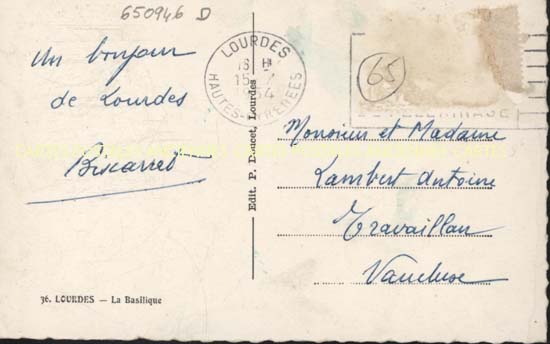 650946 D
Un bonjour
de Lourdes
Biscarret
36. LOURDES — La Basilique
Edit. P. Doucet, Lourdes
LOURDES
18 H
15
54
HAUTES-PYRENEES
65
PELERINAGE
Monsieur et Madame
Lambert Antoine
Travaillan
Vaucluse